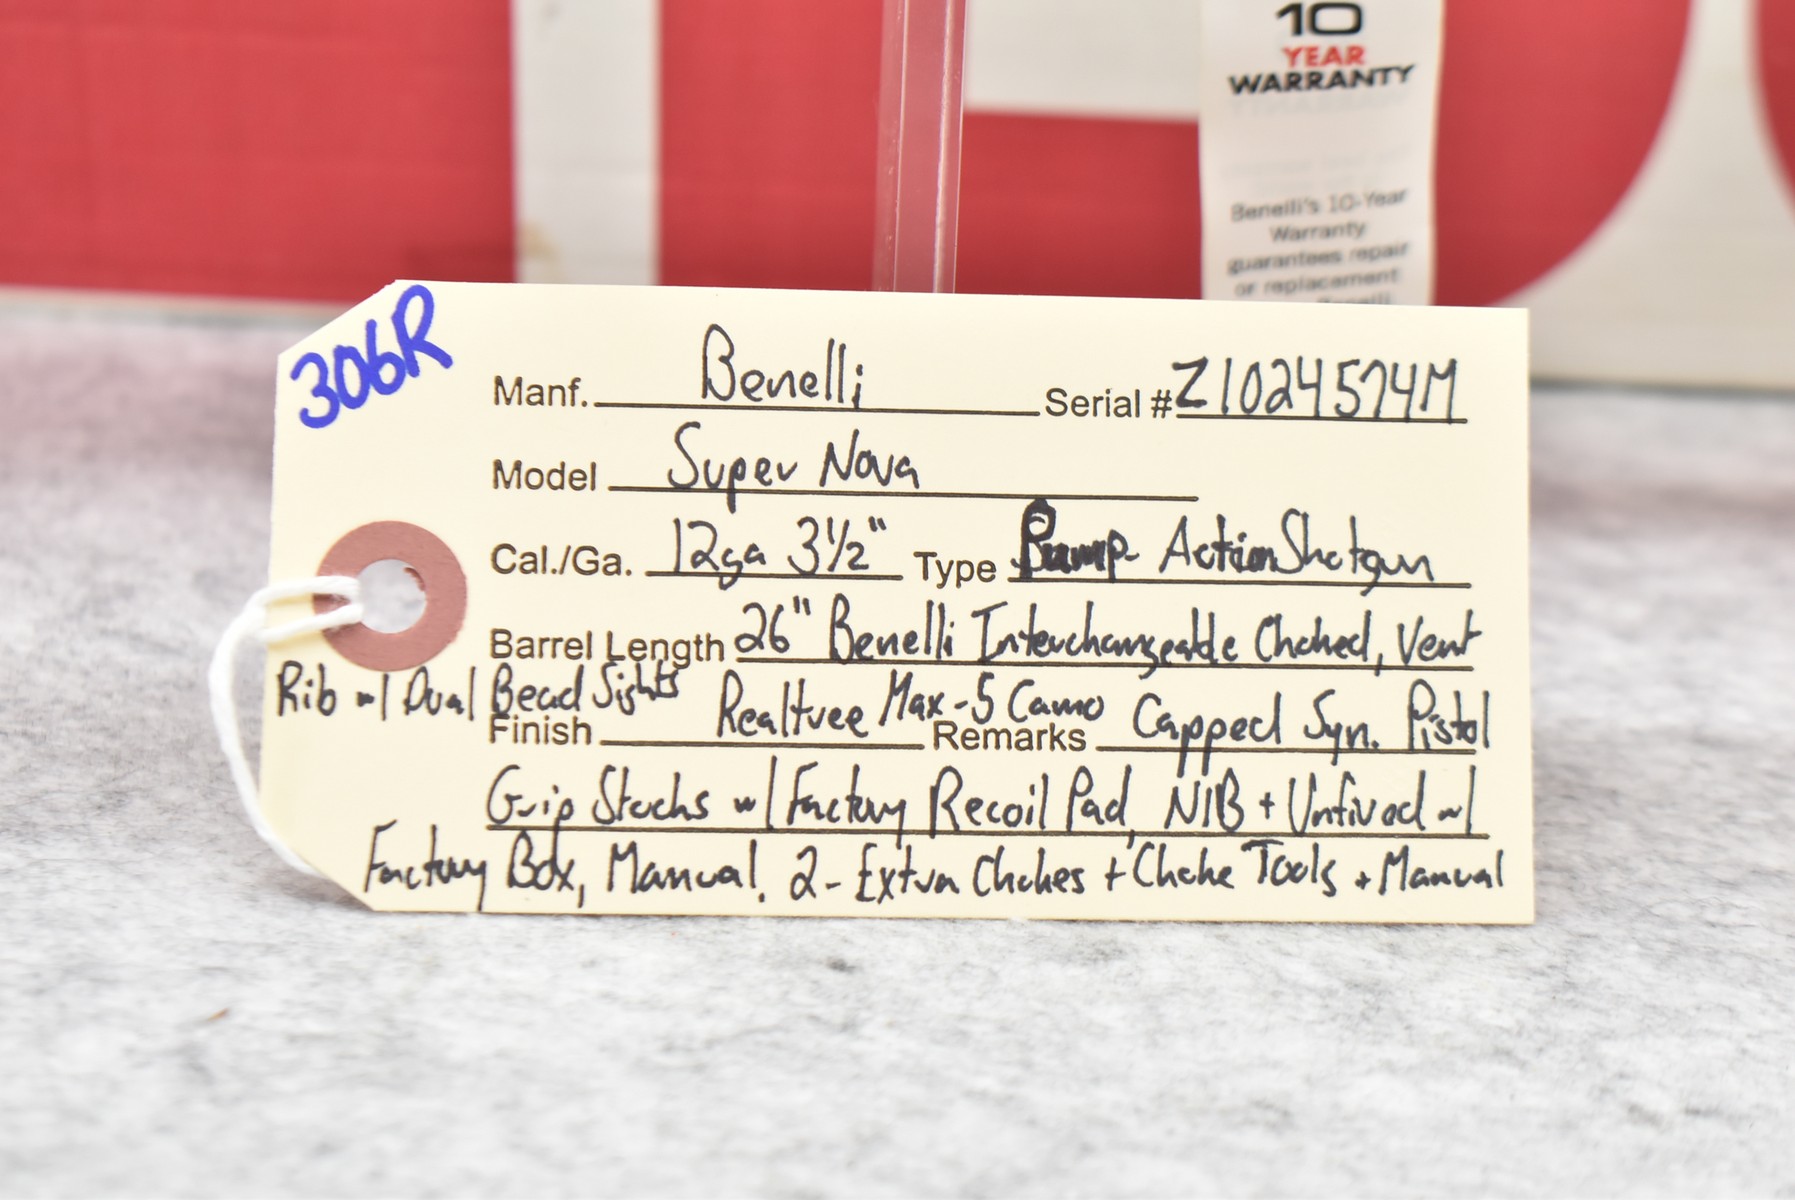 10
YEAR
WARRANTY
Benelli's 10-Year
Warranty
guarantees repair
or replacement
Benelli
306R
Manf. Benelli Serial # Z1024574M
Model Super Nova
Cal./Ga. 12ga 3½" Type Pump Action Shotgun
Barrel Length 26" Benelli Interchangeable Choked, Vent
Rib w/ Dual Bead Sights
Finish Realtree Max-5 Camo Remarks Capped Syn. Pistol
Grip Stocks w/ Factory Recoil Pad, NIB + Unfired w/
Factory Box, Manual, 2-Extra Chokes + Choke Tools + Manual